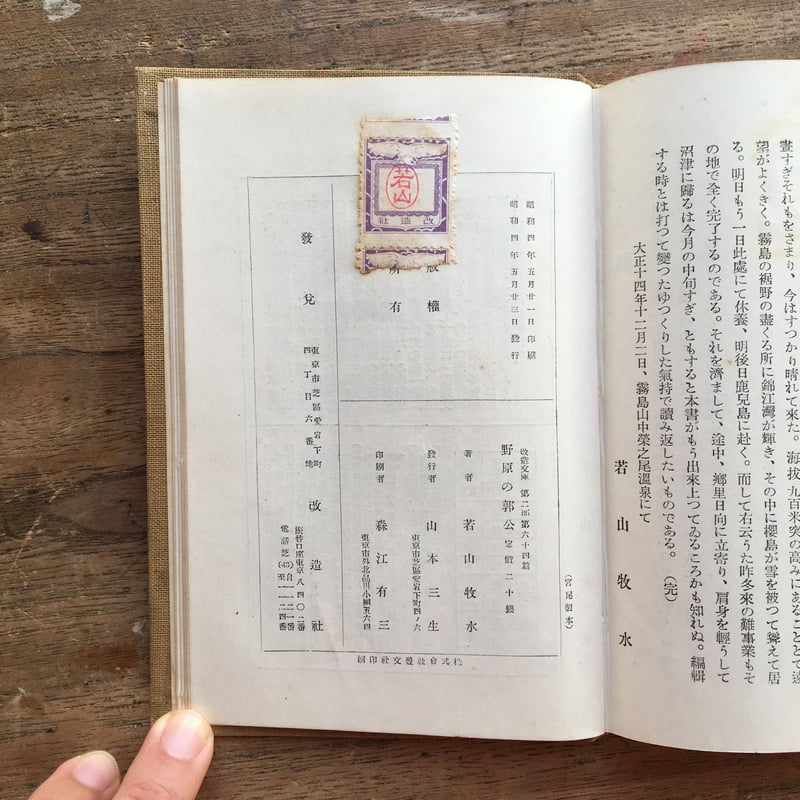 晝すぎそれもをさまり、今はすつかり晴れて來た。海拔九百米突の高みにあることとて遠
望がよくきく。霧島の裾野の盡くる所に錦江灣が輝き、その中に櫻島が雪を被つて聳えて居
る。明日もう一日此處にて休養、明後日鹿兒島に赴く。而して右云うた昨冬來の難事業もそ
の地で全く完了するのである。それを濟まして、途中、鄕里日向に立寄り、肩身を輕うして
沼津に歸るは今月の中旬すぎ、ともすると本書がもう出來上つてゐるころかも知れぬ。編輯
する時とは打つて變つたゆつくりした氣持で讀み返したいものである。(完)
大正十四年十二月二日、霧島山中榮之尾溫泉にて
若山牧水
昭和四年五月廿一日印刷
昭和四年五月廿三日發行
版權
所有
若山
改造社
(宮尾製本)
改造文庫 第二部第六十四篇
野原の郭公 定價二十錢
著者 若山牧水
發行者 山本三生
東京市芝區愛宕下町四ノ六
印刷者 森江有三
東京市外北品川小關五六四
發兌
東京市芝區愛宕下町
四丁目六番地
改造社
振替口座東京八四〇二番
電話芝(43)自一一二一番
至一一二四番
株式會社 文社印刷